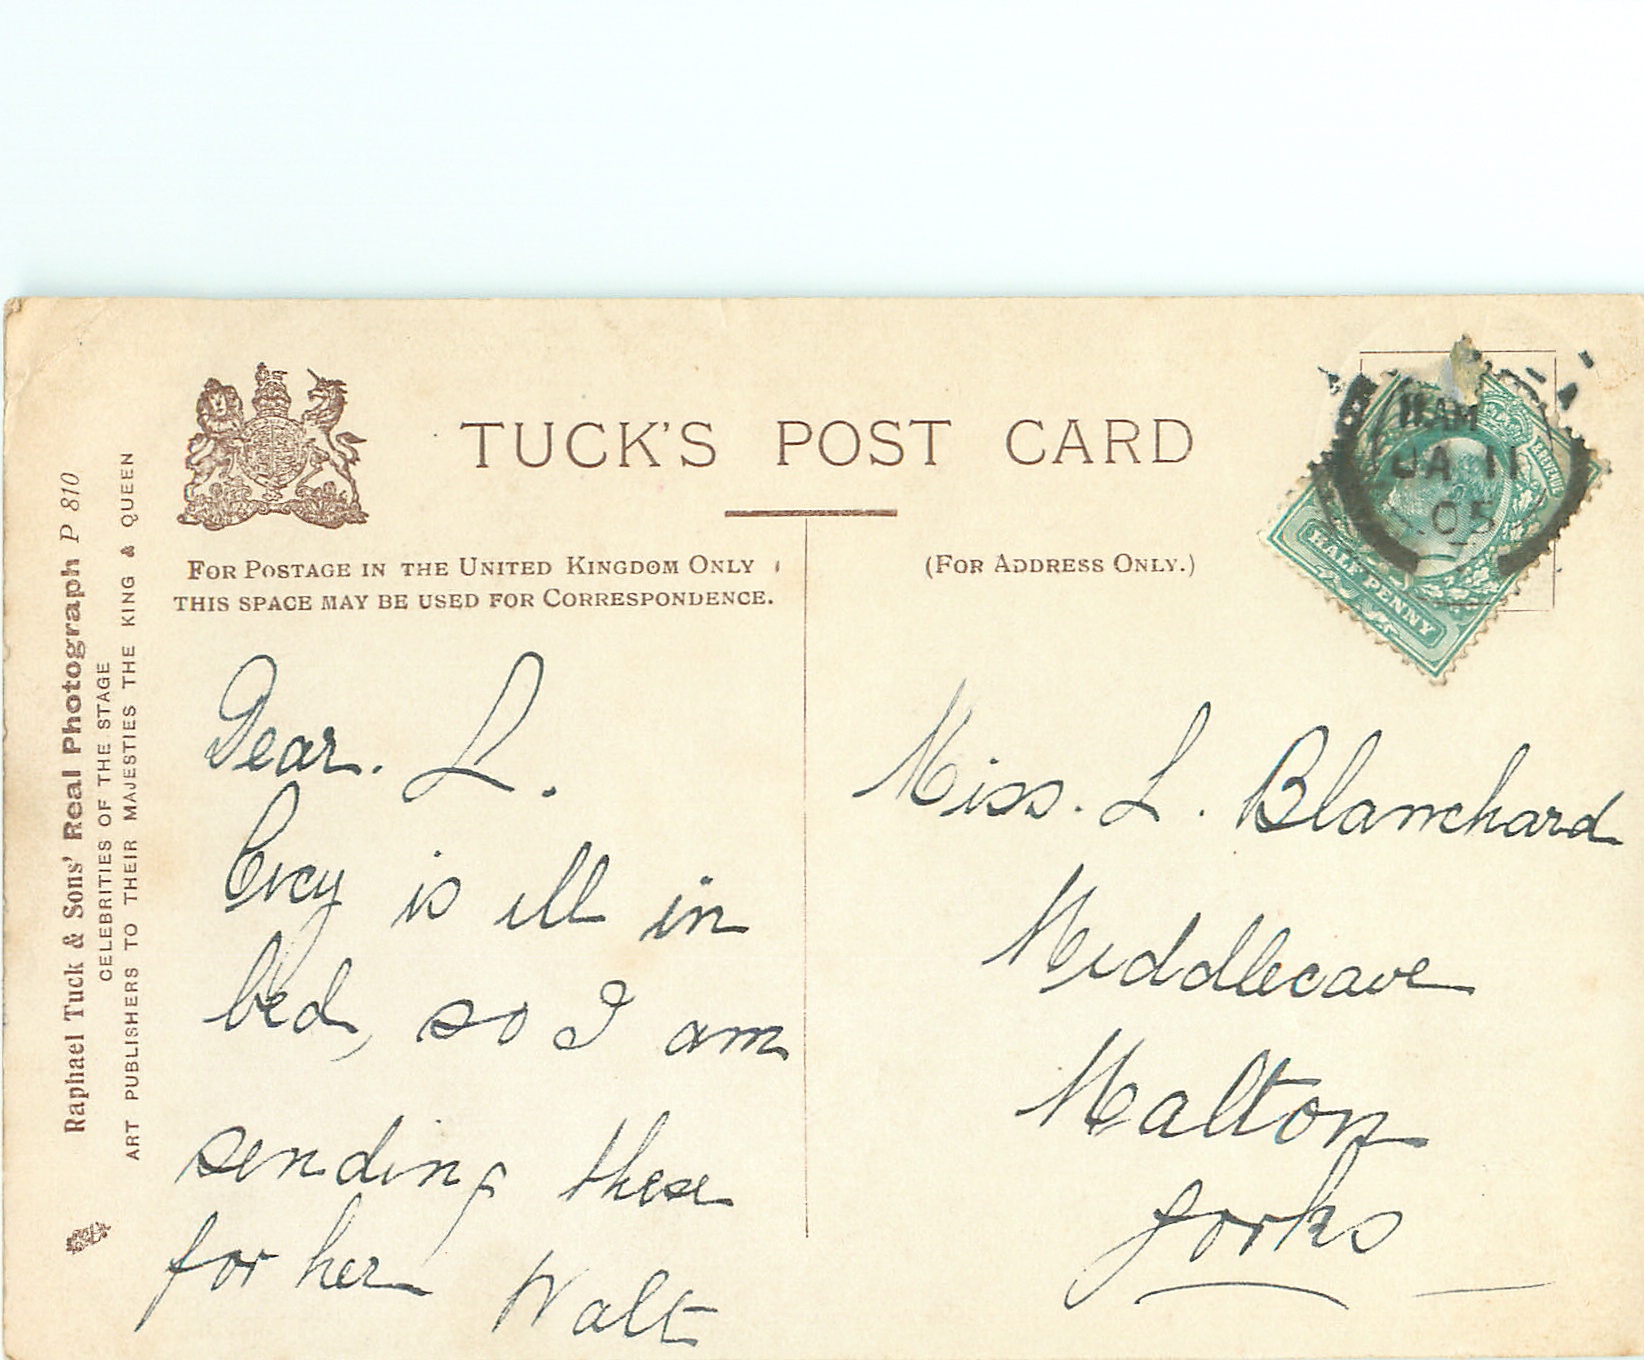 Raphael Tuck & Sons' Real Photograph P 810
CELEBRITIES OF THE STAGE
ART PUBLISHERS TO THEIR MAJESTIES THE KING & QUEEN
TUCK'S POST CARD
FOR POSTAGE IN THE UNITED KINGDOM ONLY
THIS SPACE MAY BE USED FOR CORRESPONDENCE.
(FOR ADDRESS ONLY.)
& REVENUE
HALF PENNY
11 AM
JA 11
05
Dear. L.
is ill in
bed, so I am
sending these
for her Walt
Miss. L. Blanchard
Middlecave
Malton
Yorks